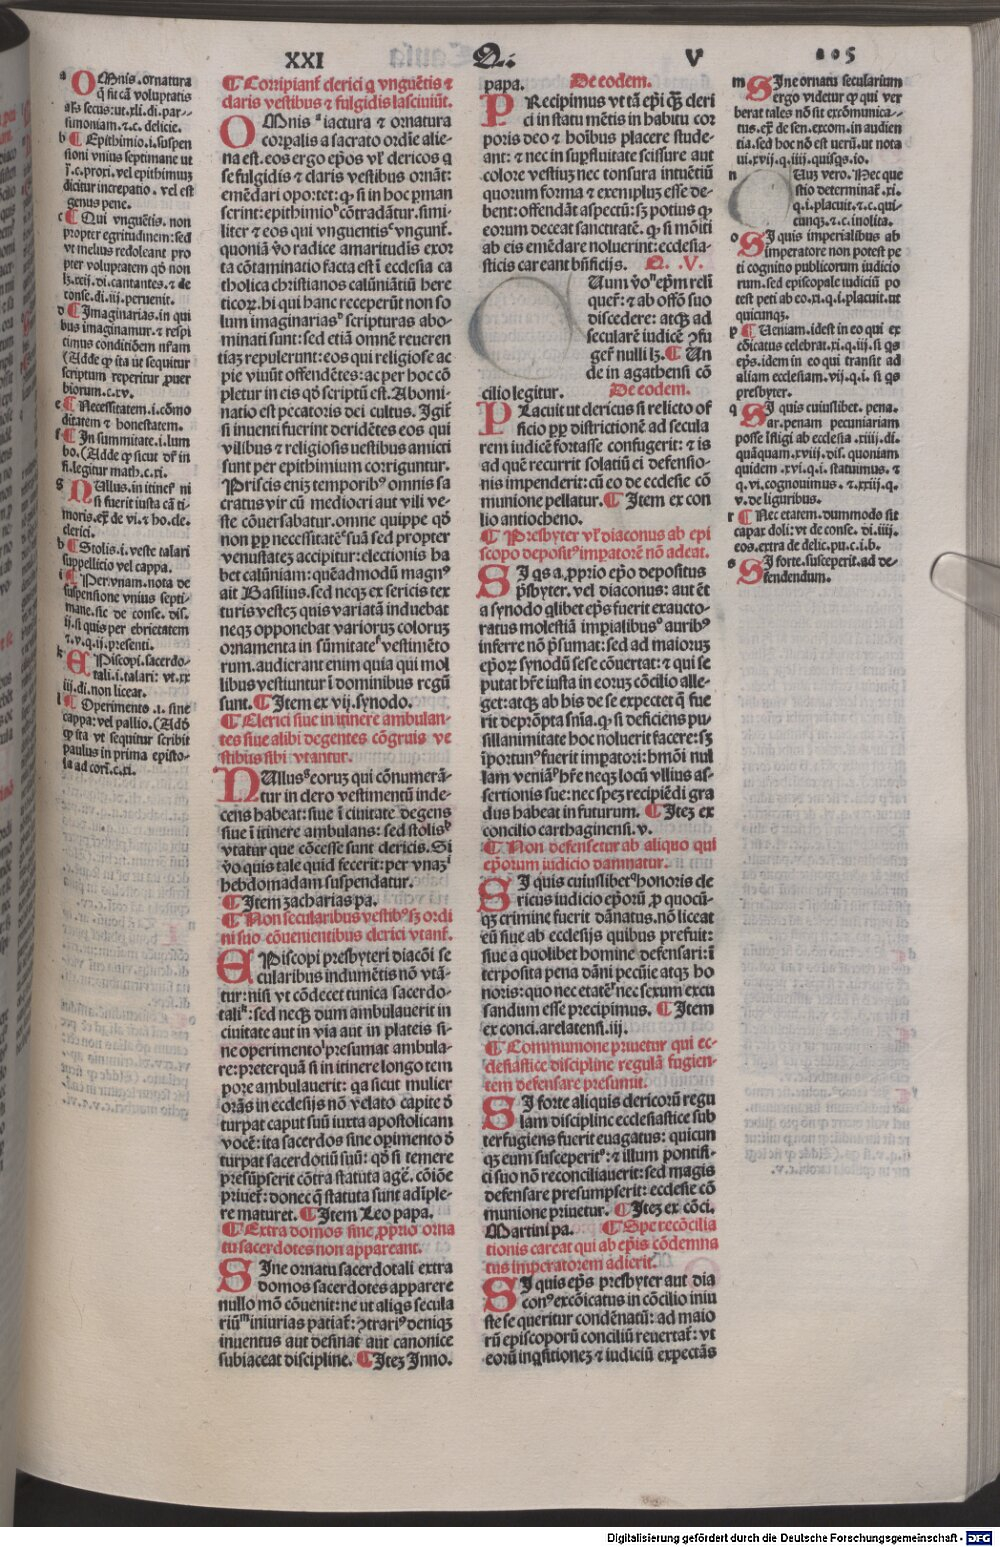 XXI Q. V 205
a OMnis. ornatura
q̄ fit cā voluptatis
als secus: ut. xli. di. par-
simoniam. ⁊. c. delicie.
b ¶ Epithimio. i. suspen
sioni vnius septimane ut
j̄. c. prori. vel epithimuz
dicitur increpatio. vel est
genus pene.
c ¶ Qui vnguētis. non
propter egritudinem: sed
vt melius redoleant pro
pter voluptatem qd̄ non
lz. xcij. di. cantantes. ⁊ de
conse. di. iij. peruenit.
d ¶ Imaginarias. in qui
bus imaginamur. ⁊ respi
cimus conditiōem nr̄am
(Adde ꝙ ita ut sequitur
scriptum reperitur ꝓuer
biorum. c. xv.
e ¶ Necessitatem. i. cōmo
ditatem ⁊ honestatem.
f ¶ In summitate. i. lum
bo. (Adde ꝙ sicut dr̄ in
fi. legitur math. c. xi.
g NUllus. in itineꝶ ni
si fuerit iusta cā ti-
moris. ex̄ de vi. ⁊ ho. cle.
clerici.
h ¶ Stolis. i. veste talari
suppellicio vel cappa.
i ¶ Per vnam. nota de
suspensione vnius septi-
mane. sic de conse. dis.
ij. si quis per ebrietatem
⁊. v. q. ij. presenti.
k EPiscopi. sacerdo-
tali. i. talari: vt. xx
iij. di. non liceat.
l ¶ Operimento. i. sine
cappa: vel pallio. (Add̄
ꝙ ita vt sequitur scribit
paulus in prima episto-
la ad corī. c. xi.
¶ Corripiant̄ clerici q vnguētis ⁊
claris vestibus ⁊ fulgidis lasciuiūt.
OMnis a iactura ⁊ ornatura
corꝑalis a sacrato ordīe alie-
na est. eos ergo ep̄os vl̓ clericos q
se fulgidis ⁊ claris vestibus ornāt:
emēdari oportet: ꝙ si in hoc ꝑman
serint: epithimio b cōtradātur. simi-
liter ⁊ eos qui vnguentis c vngunt̄.
quoniā v̄o radice amaritudis exor
ta cōtaminatio facta est ī ecclesia ca
tholica christianos calūniātiū here
ticoꝝ. hi qui hanc receperūt non so
lum imaginarias d scripturas abo-
minati sunt: sed etiā omnē reueren
tiaz repulerunt: eos qui religiose ac
pie viuūt offendētes: ac per hoc cō
pletur in eis qd̄ scriptū est. Abomi-
natio est pecatoris dei cultus. Igit̄
si inuenti fuerint deridētes eos qui
vilibus ⁊ religiosis uestibus amicti
sunt per epithimium corriguntur.
Priscis eniz temporibꝰ omnis sa
cratus vir cū mediocri aut vili ve-
ste cōuersabatur. omne quippe qd̄
non ꝓꝑ necessitatē e suā sed propter
venustatez accipitur: electionis ha
bet calūniam: quēadmodū magnꝰ
ait Basilius. sed neqꝫ ex sericis tex
turis vestez quis variatā induebat
neqꝫ opponebat variorux coloruz
ornamenta in sūmitate f vestimēto
rum. audierant enim quia qui mol
libus vestiuntur ī dominibus regū
sunt. ¶ Item ex vij. synodo.
¶ Clerici siue in itinere ambulan-
tes siue alibi degentes cōgruis ve
stibus sibi vtantur.
NUllus g eoruz qui cōnumerā-
tur in clero vestimentū inde-
cens habeat: siue ī ciuitate degens
siue ī itinere ambulans: sed stolis h
vtatur que cōcesse sunt clericis. Si
v̄o quis tale quid fecerit: per vnaz i
hebdomadam suspendatur.
¶ Item zacharias pa.
¶ Non secularibus vestibꝰ sꝫ ordi
ni suo cōuenientibus clerici vtant̄.
EPiscopi presbyteri diacōi se
cularibus indumētis nō vtā-
tur: nisi vt cōdecet tunica sacerdo-
tali k: sed neqꝫ dum ambulauerit in
ciuitate aut in via aut in plateis si-
ne operimento l presumat ambula-
re: preterquā si in itinere longo tem
pore ambulauerit: qa sicut mulier
orās in ecclesijs nō velato capite d̄
turpat caput suū iuxta apostolicam
vocē: ita sacerdos sine oꝑimento d̄
turpat sacerdotiū suū: qd̄ si temere
presūpserit cōtra statuta agē. cōiōe
priuet̄: donec q̄ statuta sunt adīple-
re maturet. ¶ Item Leo papa.
¶ Extra domos sine ꝓprio orna
tu sacerdotes non appareant.
SIne ornatu sacerdotali extra
domos sacerdotes apparere
nullo mō cōuenit: ne ut aliqs secula
riū m iniurias patiat̄: ↄtrariꝰ deniqꝫ
inuentus aut definat̄ aut canonice
subiaceat discipline. ¶ Itez Inno.
papa. De eodem.
PRecipimus vt tā ep̄i qꝫ cleri
ci in statu mētis in habitu cor
poris deo ⁊ hoībus placere stude-
ant: ⁊ nec in suꝑfluitate scissure aut
colore vestiuz nec tonsura intuētiū
quorum forma ⁊ exempluz esse de-
bent: offendāt aspectū: sꝫ potius ꝙ
eorum deceat sanctitatē. ꝙ si mōiti
ab eis emēdare noluerint: ecclesia-
sticis careant bn̄ficijs. Q. V.
CUum v̄o n ep̄m reli
quer̄: ⁊ ab offō suo
discedere: atqꝫ ad
seculare iudicē ↄfu
ger̄ nulli lz. ¶ Un
de in agathensi cō
cilio legitur. De eodem.
PLacuit ut clericus si relicto of
ficio ꝓꝑ districtionē ad secula
rem iudicē fortasse confugerit: ⁊ is
ad quē recurrit solatiū ei defensio-
nis impenderit: cū eo de ecclesie cō
munione pellatur. ¶ Item ex con
lio antiocheno.
¶ Presbyter vl̓ diaconus ab epi
scopo depositꝰ impatorē nō adeat.
SI qs a ꝓprio ep̄o depositus
p̄sbyter. vel diaconus: aut ēt
a synodo qlibet ep̄s fuerit exaucto-
ratus molestiā imꝑialibus o auribꝰ
inferre nō p̄sumat: sed ad maioruz
ep̄oꝝ synodū sese cōuertat: ⁊ qui se
putat hr̄e iusta in eorux cōcilio alle-
get: atqꝫ ab his de se expectet q̄ fue
rit depr̄opta sn̄ia. ꝙ si deficiens pu-
sillanimitate hoc noluerit facere: sꝫ
īportunꝰ fuerit impatori: hmōi nul
lam veniā p hr̄e neqꝫ locū vllius as-
sertionis sue: nec spez recipiēdi gra
dus habeat in futurum. ¶ Itez ex
concilio carthaginensi. v.
¶ Non defensetur ab aliquo qui
ep̄orum iudicio damnatur.
SI quis cuiuslibet q honoris cle
ricus iudicio ep̄orū ꝓ quocū-
qꝫ crimine fuerit dānatus. nō liceat
eū siue ab ecclesijs quibus prefuit:
siue a quolibet homine defensari: ī
terposita pena dāni pecūie atqꝫ ho
noris: quo nec etatē r nec sexum excu
sandum esse precipimus. ¶ Item
ex conci. arelatensi. iij.
¶ Communione priuetur qui ec-
clesiastice discipline regulā fugien-
tem defensare presumit.
SI forte aliquis clericorū regu
lam discipline ecclesiastice sub
terfugiens fuerit euagatus: quicun
qꝫ eum susceperit s: ⁊ illum pontifi-
ci suo nō reconciliauerit: sed magis
defensare presumpserit: ecclesie cō
munione priuetur. ¶ Itez ex cōci.
Martini pa. ¶ Spe recōcilia
tionis careat qui ab ep̄is cōdemna
tus imperatorem adierit.
SI quis ep̄s presbyter aut dia
conꝰ excōicatus in cōcilio iniu
ste se queritur condēnatū: ad maio
rū episcoporū conciliū reuertat̄: vt
eorū inqsitionez ⁊ iudiciū expectās
m SIne ornatu secularium
ergo videtur ꝙ qui ver
berat tales nō sit excōmunica-
tus. ex̄ de sen. excom. in audien
tia. sed hoc nō est uerū. ut nota
ui. xvij. q. iiij. quisqs. io.
n CUuz vero. Nec que
stio determinat̄. xi.
q. i. placuit. ⁊. c. qui-
cunqꝫ. ⁊. c. inolita.
o SI quis imperialibus ab
imperatore non potest pe
ti cognito publicorum iudicio
rum. sed episcopale iudiciū po
test peti ab eo. xi. q. i. placuit. ut
quicunqꝫ.
p ¶ Ueniam. idest in eo qui ex
cōicatus celebrat. xi. q. iij. si qs
ep̄s. idem in eo qui transit ad
aliam ecclesiam. vij. q. i. si qs
presbyter.
q SI quis cuiuslibet. pena.
ar. penam pecuniariam
posse īfligi ab ecclesia. xiiij. di.
quāquam. xviij. dis. quoniam
quidem. xvi. q. i. statuimus. ⁊
q. vi. cognouimus. ⁊. xxiij. q.
v. de liguribus.
r ¶ Nec etatem. dummodo sit
capax doli: vt de conse. di. iiij.
eos. extra de delic. pu. c. i. h.
s SI forte. susceperit. ad de-
fendendum.
Digitalisierung gefördert durch die Deutsche Forschungsgemeinschaft - DFG